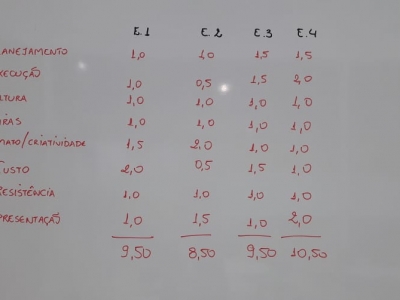 E.1 E.2 E.3 E.4
LANEJAMENTO 1,0 1,0 1,5 1,5
XECUÇÃO 1,0 0,5 1,5 2,0
LTURA 1,0 1,0 1,0 1,0
1,0 1,0 1,0 1,0
MATO/CRIATIVIDADE 1,5 2,0 1,0 1,0
USTO 2,0 0,5 1,5 1,0
RESISTÊNCIA 1,0 1,0 1,0 1,0
PRESENTAÇÃO 1,0 1,5 1,0 2,0
9,50 8,50 9,50 10,50